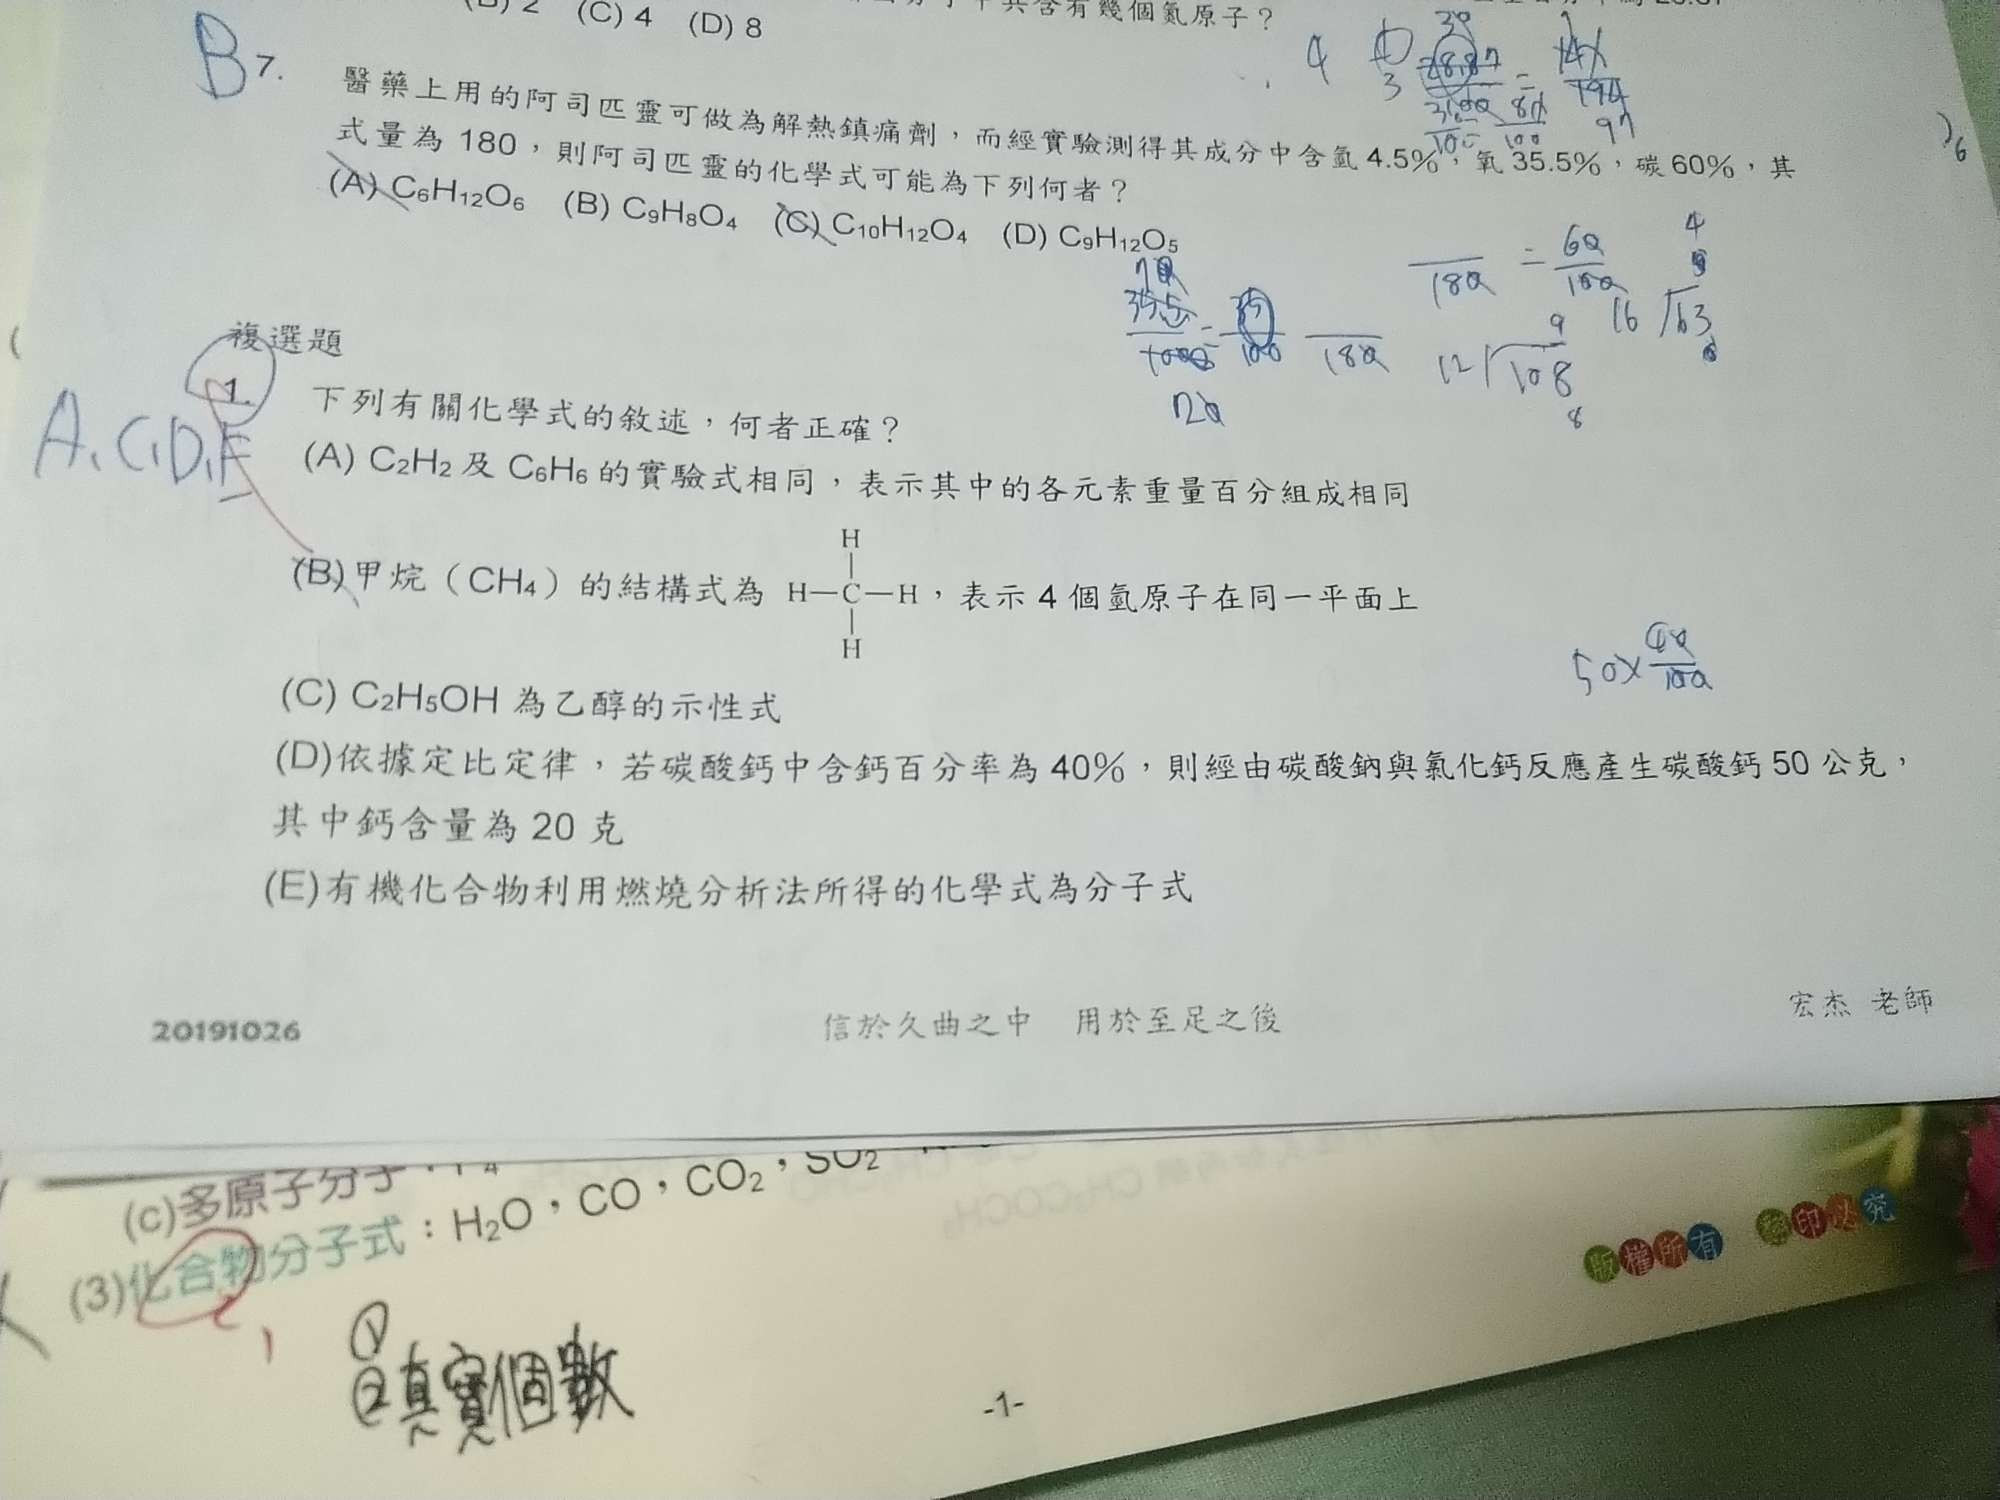 (B) 2 (C) 4 (D) 8
共含有幾個氮原子？
B 7. 醫藥上用的阿司匹靈可做為解熱鎮痛劑，而經實驗測得其成分中含氫 4.5%，氧 35.5%，碳 60%，其
式量為 180，則阿司匹靈的化學式可能為下列何者？
(A) C6H12O6 (B) C9H8O4 (C) C10H12O4 (D) C9H12O5
180 = 60/100
12 108 9
16 63
複選題
A, C, D, E
1. 下列有關化學式的敘述，何者正確？
(A) C2H2 及 C6H6 的實驗式相同，表示其中的各元素重量百分組成相同
H
(B)甲烷（CH4）的結構式為 H—C—H，表示 4 個氫原子在同一平面上
H
50×40/100
(C) C2H5OH 為乙醇的示性式
(D)依據定比定律，若碳酸鈣中含鈣百分率為 40%，則經由碳酸鈉與氯化鈣反應產生碳酸鈣 50 公克，
其中鈣含量為 20 克
(E)有機化合物利用燃燒分析法所得的化學式為分子式
20191026 信於久曲之中 用於至足之後 宏杰 老師
(c)多原子分子
(3)化合物分子式：H2O，CO，CO2，SO2
版權所有 翻印必究
①
②真實個數
-1-